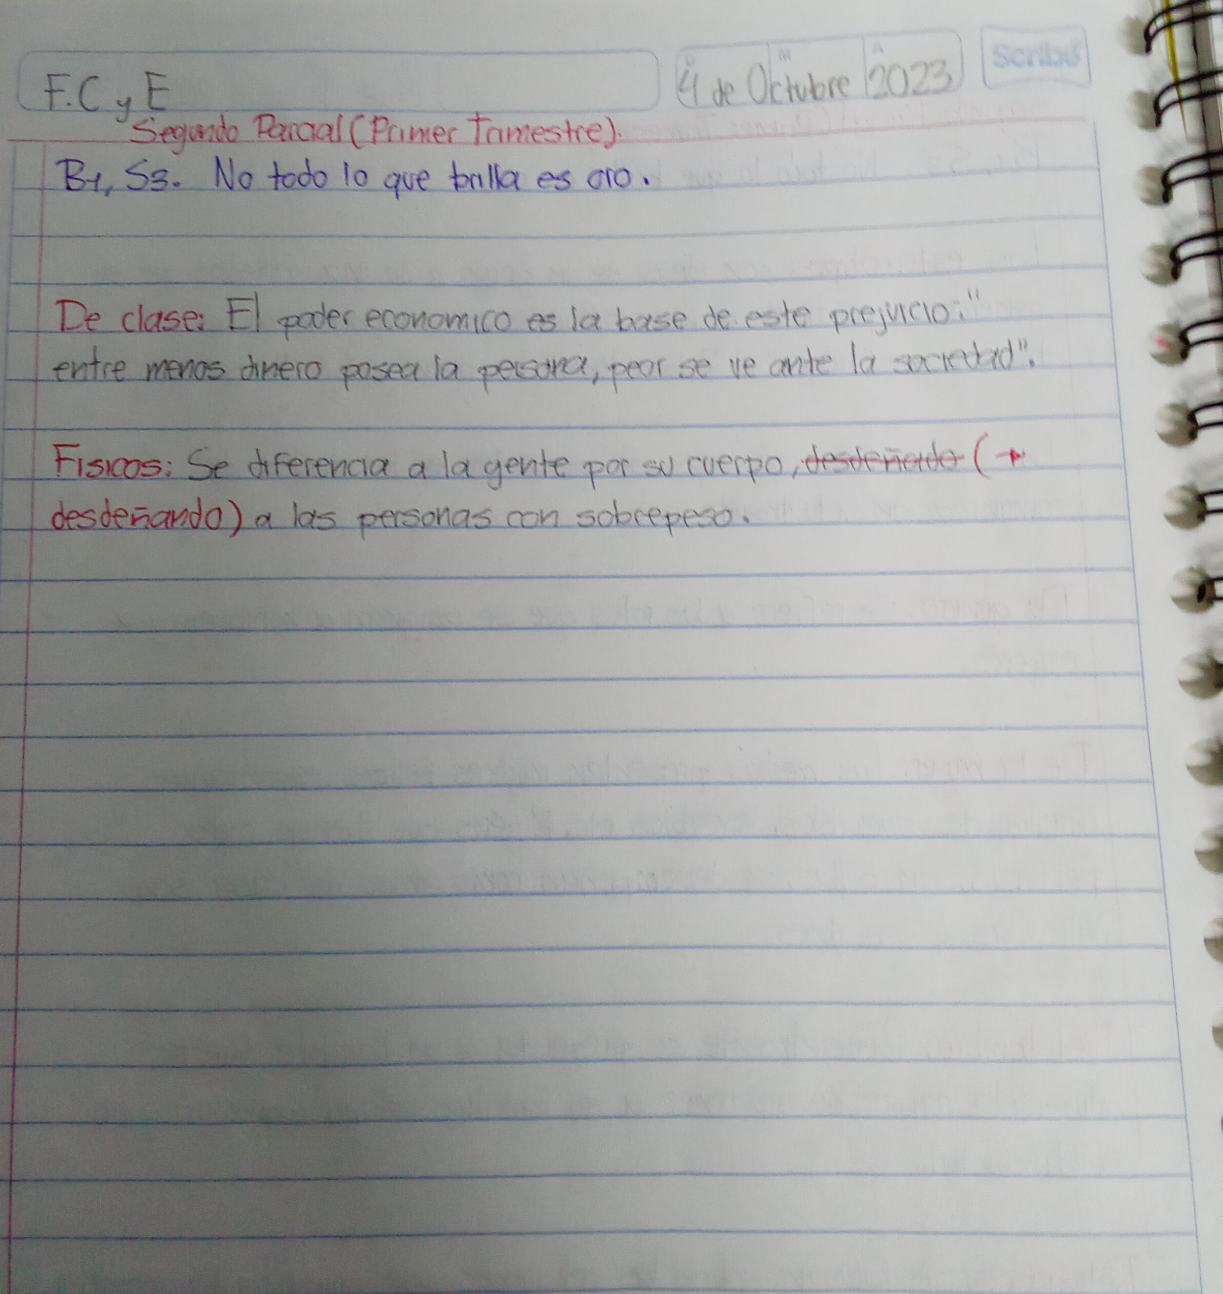 F.C y E
4 de Octubre 2023
Scribe
Segundo Parcial (Primer Trimestre).
B1, S3. No todo lo que brilla es oro.
De clase: El poder economico es la base de este prejuicio: "
entre menos dinero posea la persona, peor se ve ante la sociedad".
Fisicos: Se diferencia a la gente por su cuerpo, desdeñando (→
desdeñando) a las personas con sobrepeso.